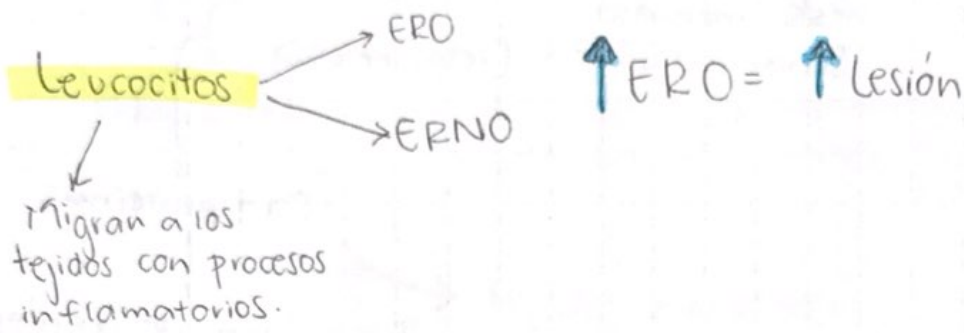 ERO
Leucocitos
ERNO
↑ ERO = ↑ Lesión
Migran a los
tejidos con procesos
inflamatorios.